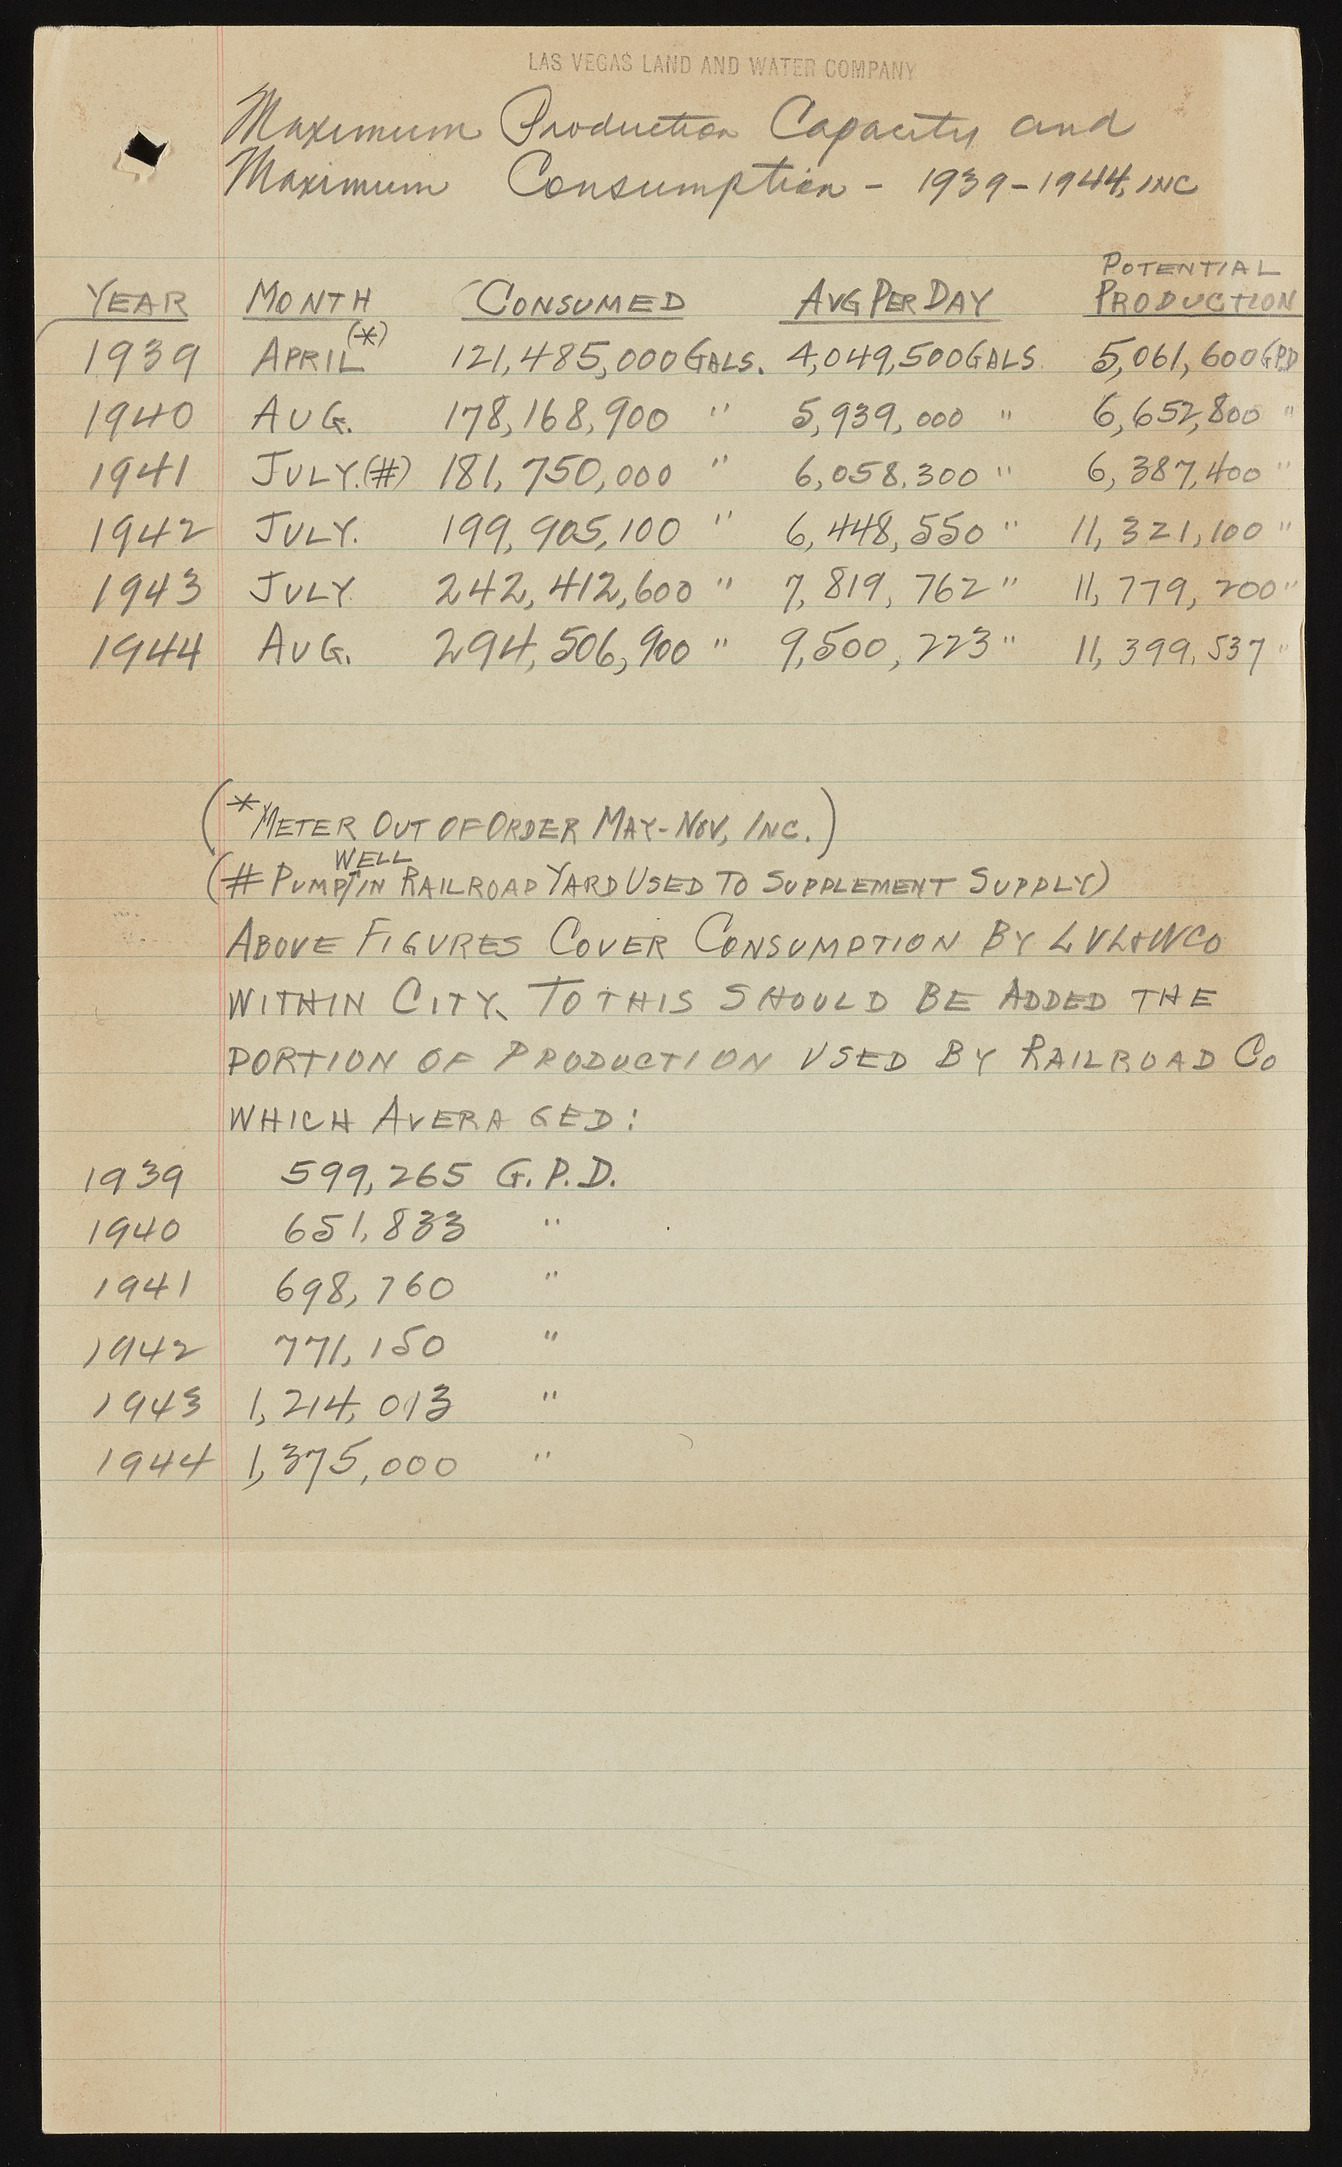 LAS VEGAS LAND AND WATER COMPANY
Maximum Production Capacity and
Maximum Consumption - 1939-1944, INC
YEAR MONTH CONSUMED AVG PER DAY POTENTIAL PRODUCTION
1939 APRIL (*) 121,485,000 GALS. 4,049,500 GALS. 5,061,600 GPD
1940 AUG. 178,168,900 " 5,939,000 " 6,652,800 "
1941 JULY.(#) 181,750,000 " 6,058,300 " 6,387,400 "
1942 JULY. 199,905,100 " 6,448,550 " 11,321,100 "
1943 JULY. 242,412,600 " 7,819,762 " 11,779,200 "
1944 AUG. 294,506,900 " 9,500,223 " 11,399,537 "
(* METER OUT OF ORDER MAY-NOV, INC.)
(# PUMP WELL IN RAILROAD YARD USED TO SUPPLEMENT SUPPLY)
ABOVE FIGURES COVER CONSUMPTION BY LVL&WCO
WITHIN CITY. TO THIS SHOULD BE ADDED THE
PORTION OF PRODUCTION USED BY RAILROAD CO
WHICH AVERAGED:
1939 599,265 G.P.D.
1940 651,833 "
1941 698,760 "
1942 771,150 "
1943 1,214,013 "
1944 1,375,000 "